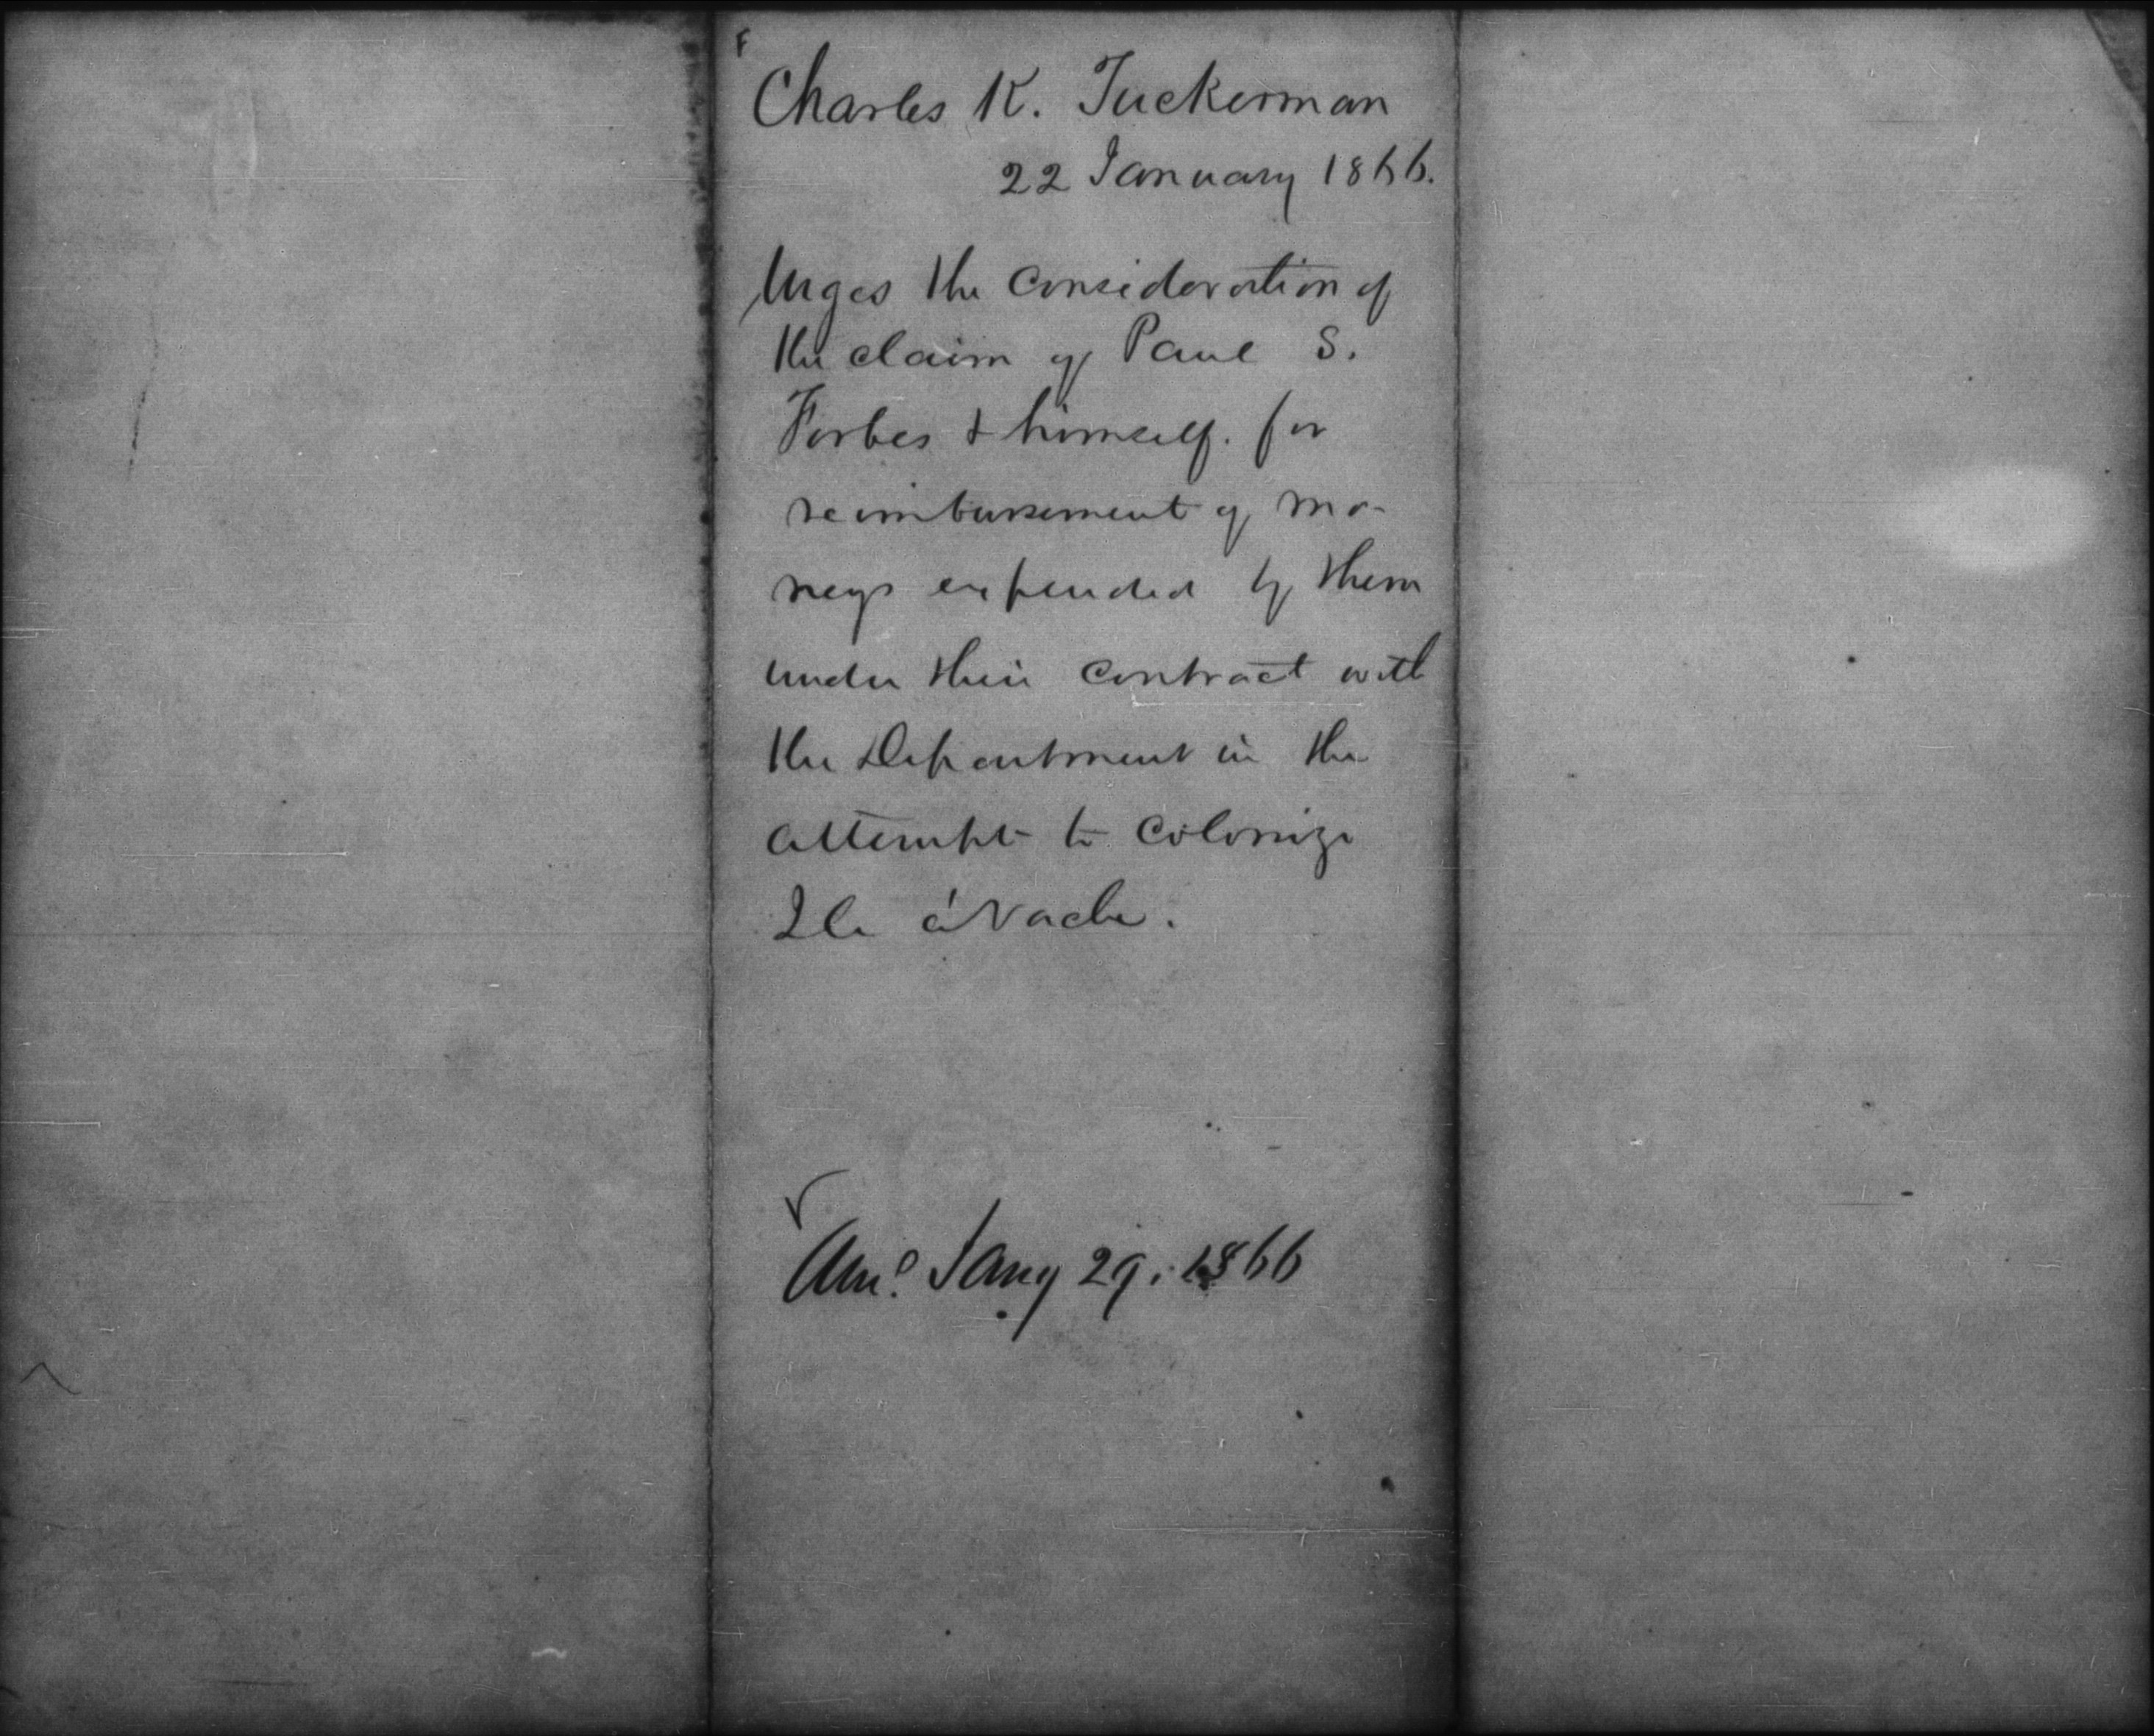 F
Charles K. Tuckerman
22 January 1866.
Urges the consideration of
the claim of Paul S.
Forbes & himself. for
reimbursement of mo-
neys expended by them
under their contract with
the Department in the
attempt to colonize
Ile á Vache.
Ansd. Jany 29. 1866